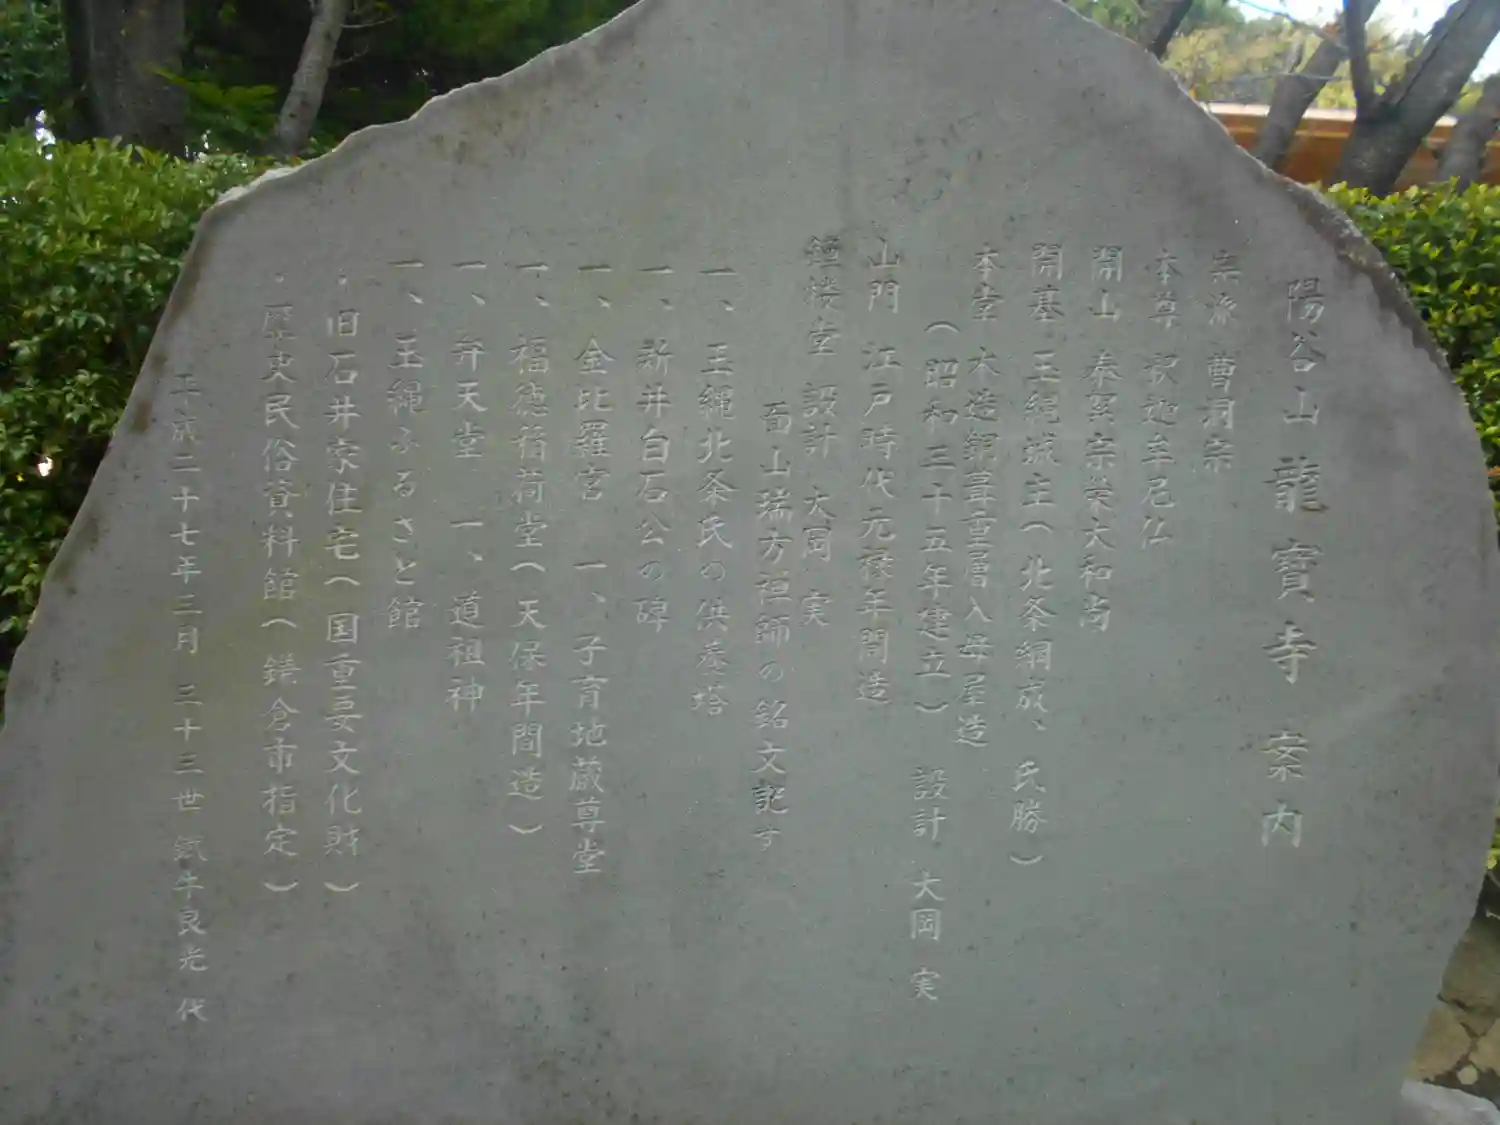 陽谷山 龍寶寺 案内
宗派 曹洞宗
本尊 釈迦牟尼仏
開山 泰絮宗榮大和尚
開基 玉縄城主(北条綱成、氏勝)
本堂 大造銅葺重層入母屋造
(昭和三十五年建立) 設計 大岡 実
山門 江戸時代元禄年間造
鐘楼堂 設計 大岡 実
面山瑞方禅師の銘文記す
一、玉縄北条氏の供養塔
一、新井白石公の碑
一、金比羅宮 一、子育地蔵尊堂
一、福徳稲荷堂(天保年間造)
一、弁天堂 一、道祖神
一、玉縄ふるさと館
・旧石井家住宅(国重要文化財)
・歴史民俗資料館(鎌倉市指定)
平成二十七年三月 三十三世 牛良光 代